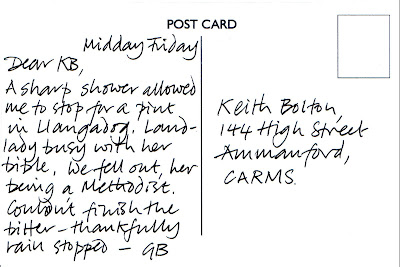 POST CARD
Midday Friday
Dear KB,
A sharp shower allowed
me to stop for a pint
in Llangadog. Land-
lady busy with her
bible. We fell out, her
being a Methodist.
Couldn't finish the
bitter - thankfully
rain stopped - GB
Keith Bolton,
144 High Street
Ammanford,
CARMS.